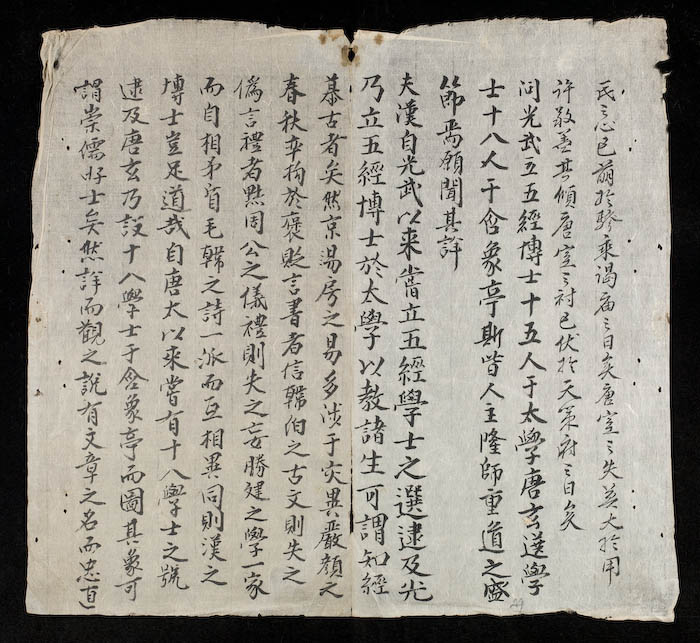 民之心已萌於驂乘谒庙之日矣唐室之失莫大於用
许敬善其傾唐室之已伏於天策府之日矣
问光武立五經博士十五人于太學唐玄選學
士十八人于含象亭斯皆人主隆師重道之盛
節焉願聞其詳
夫漢自光武以来嘗立五經學士之選逮及光
乃立五經博士於太學以教諸生可謂知經
慕古者矣然京湯房之易多涉于灾異嚴顔之
春秋牵拘於褒貶言書者信韓伯之古文則失之
偽言禮者黙周公之儀禮則失之妄勝建之學一家
而自相矛盾毛韓之詩一派而互相異同則漢之
博士豈足道哉自唐太以来嘗有十八學士之號
逮及唐玄乃設十八學士于含象亭而圖其象可
謂崇儒好士矣然詳而觀之説有文章之名而忠直